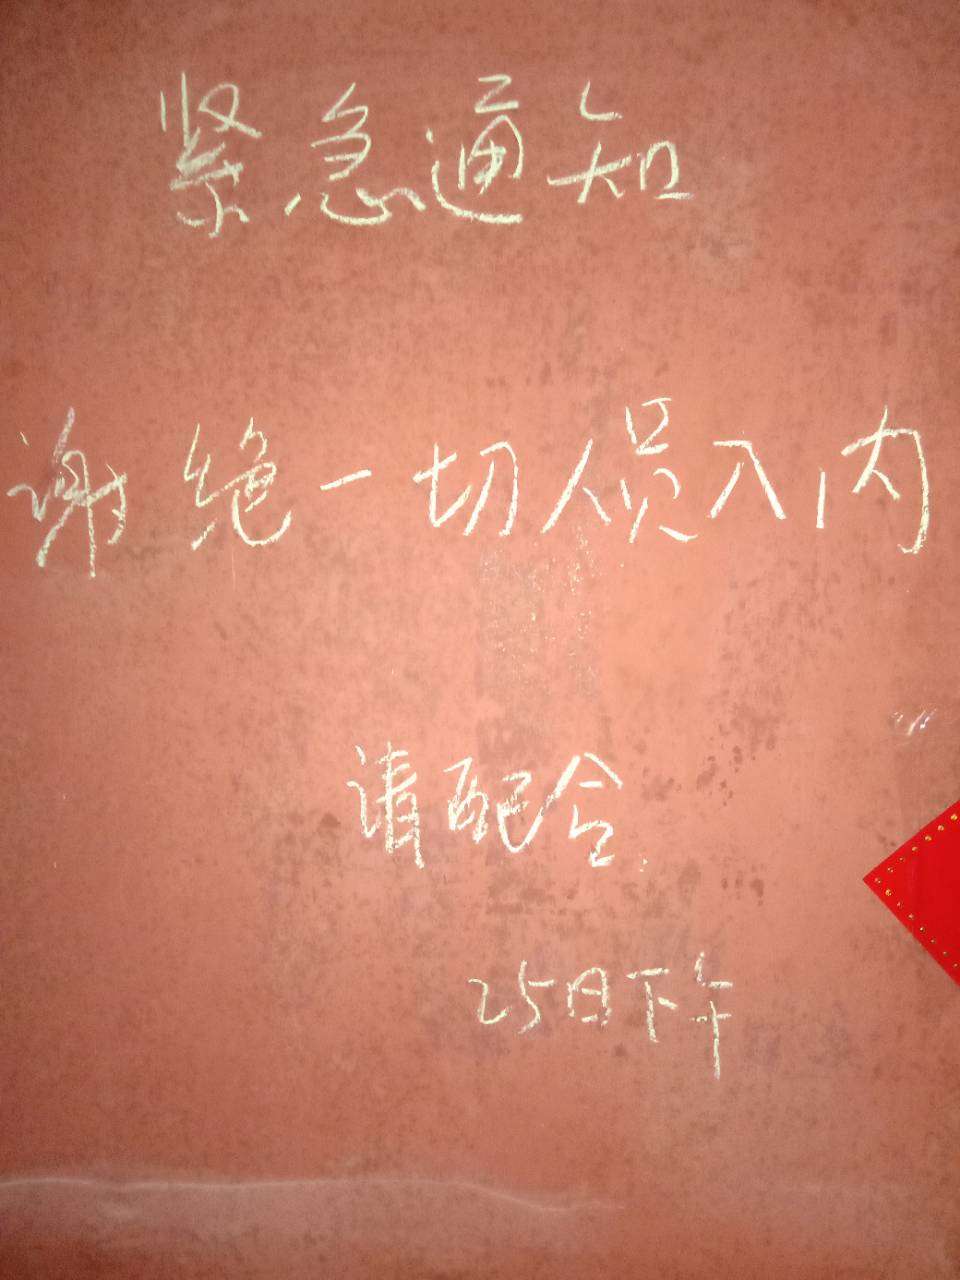 紧急通知
谢绝一切人员入内
请配合
25日下午